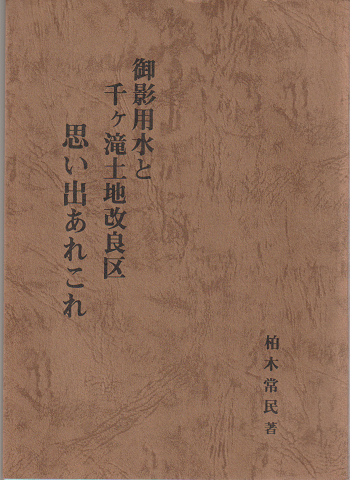 御影用水と
千ヶ滝土地改良区
思い出あれこれ
柏木常民著